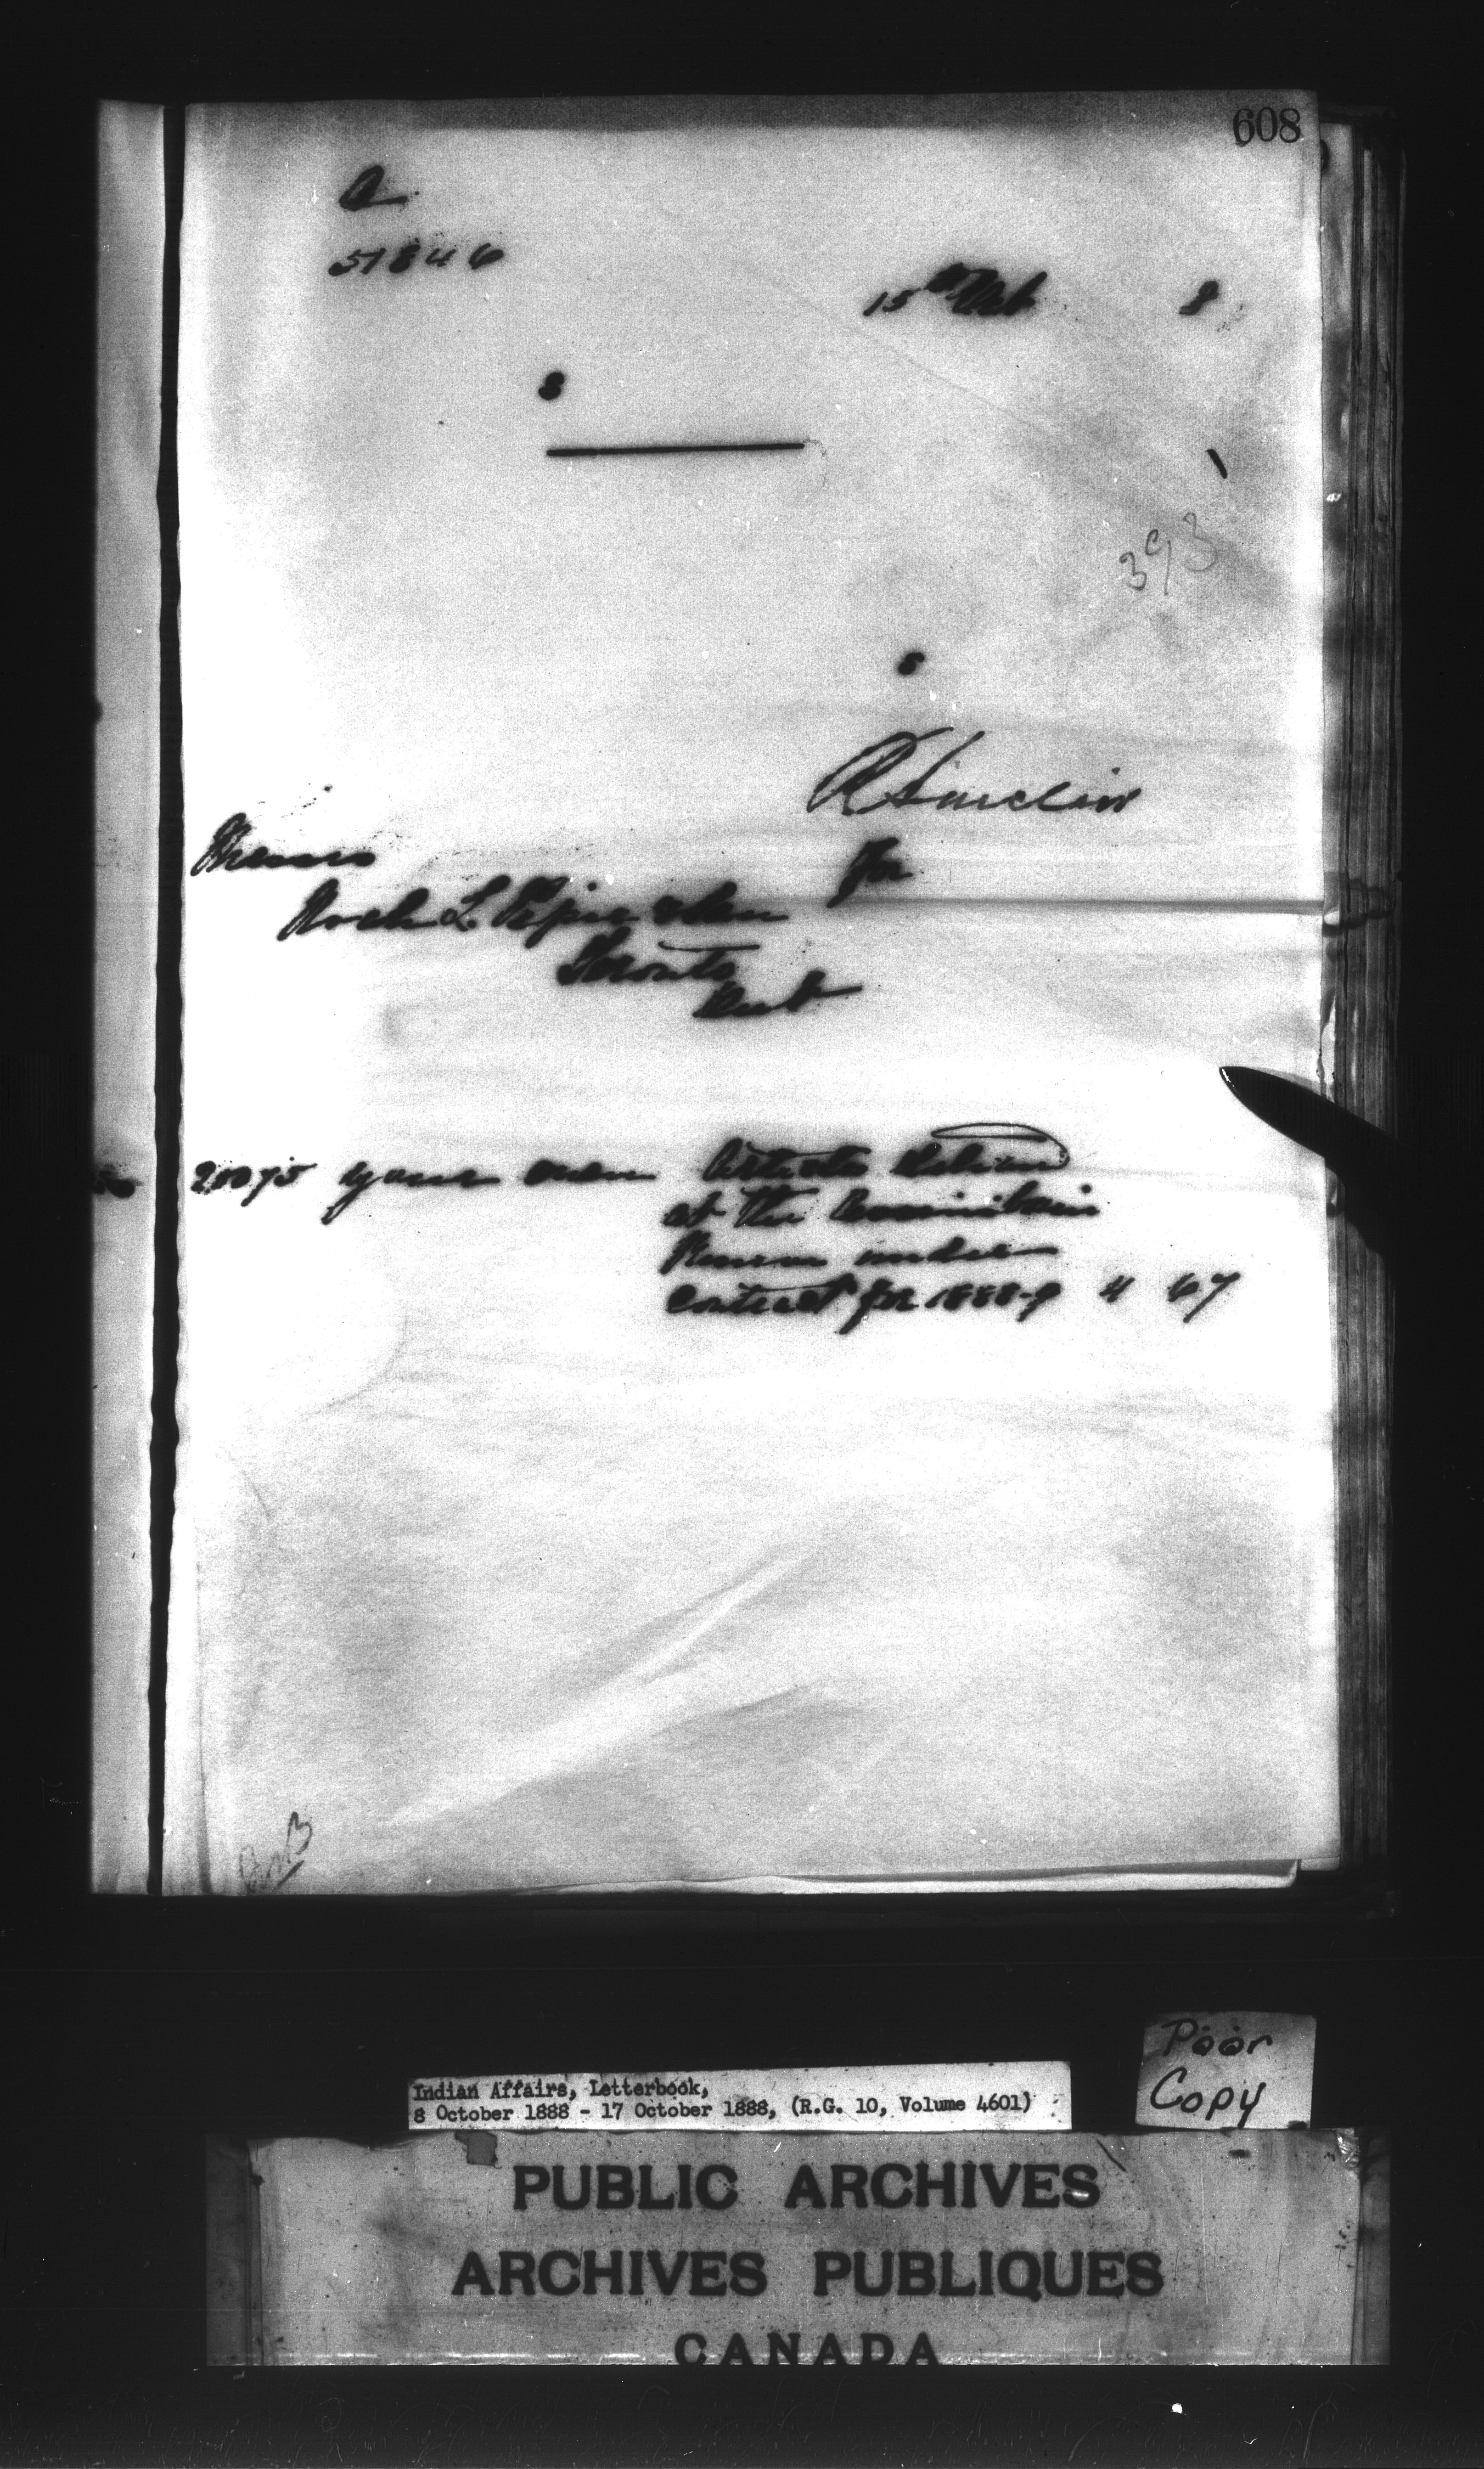 608
A
51846
15th Oct 8
8
393
8
R Sinclair
Messrs
for
Noah L. Piper & Son
Toronto
Ont
20075 yours Articles
at the
under
contract for 1888-9 4 67
Poor
Copy
Indian Affairs, Letterbook,
8 October 1888 - 17 October 1888, (R.G. 10, Volume 4601)
PUBLIC ARCHIVES
ARCHIVES PUBLIQUES
CANADA